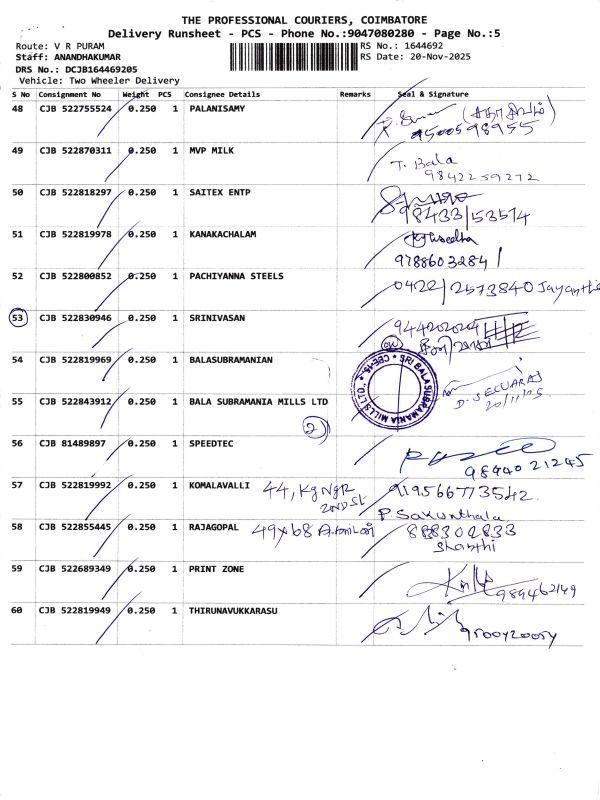 THE PROFESSIONAL COURIERS, COIMBATORE
Delivery Runsheet - PCS - Phone No.:9047080280 - Page No.:5
Route: V R PURAM
RS No.: 1644692
Staff: ANANDHAKUMAR
RS Date: 20-Nov-2025
DRS No.: DCJB164469205
Vehicle: Two Wheeler Delivery
S No Consignment No Weight PCS Consignee Details Remarks Seal & Signature
48 CJB 522755524 0.250 1 PALANISAMY
9500598955
49 CJB 522870311 0.250 1 MVP MILK T. Bala
9842259272
50 CJB 522818297 0.250 1 SAITEX ENTP
98433/53574
51 CJB 522819978 0.250 1 KANAKACHALAM
9788603284
52 CJB 522800852 0.250 1 PACHIYANNA STEELS 0422/2573840 Jayanthi
53 CJB 522830946 0.250 1 SRINIVASAN
54 CJB 522819969 0.250 1 BALASUBRAMANIAN
SRI BALASUBRAMANIA MILLS LTD., CBE-15
55 CJB 522843912 0.250 1 BALA SUBRAMANIA MILLS LTD
20/11/25
2
56 CJB 81489897 0.250 1 SPEEDTEC
9894021245
57 CJB 522819992 0.250 1 KOMALAVALLI 44, Kg Ngr 919566773542
2ND St
P Sakunthala
58 CJB 522855445 0.250 1 RAJAGOPAL 888302833
Shanthi
59 CJB 522689349 0.250 1 PRINT ZONE
989462149
60 CJB 522819949 0.250 1 THIRUNAVUKKARASU